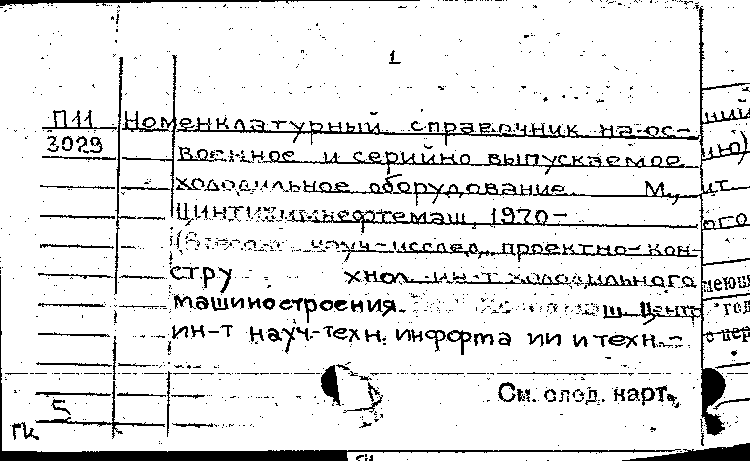 1
П11 Номенклатурный справочник на ос-
3029 военное и серийно выпускаемое
холодильное оборудование. М.,
ЦИНТИхимнефтемаш, 1970-
науч-исслед., проектно-кон-
стру хнол. ин-т холодильного
машиностроения. Центр
ин-т науч-техн. информа ии и техн.-
См. след. карт.
ГК 5